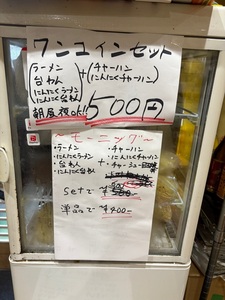 ワンコインセット
ラーメン
台わん
にんにくラーメン
にんにく台わん
+
チャーハン
にんにくチャーハン
朝昼夜OK!!
500円
〜モーニング〜
・ラーメン
・にんにくラーメン
・台わん
・にんにく台わん
+
・チャーハン
・にんにくチャーハン
・チャーシュー
setで
単品で ¥400-